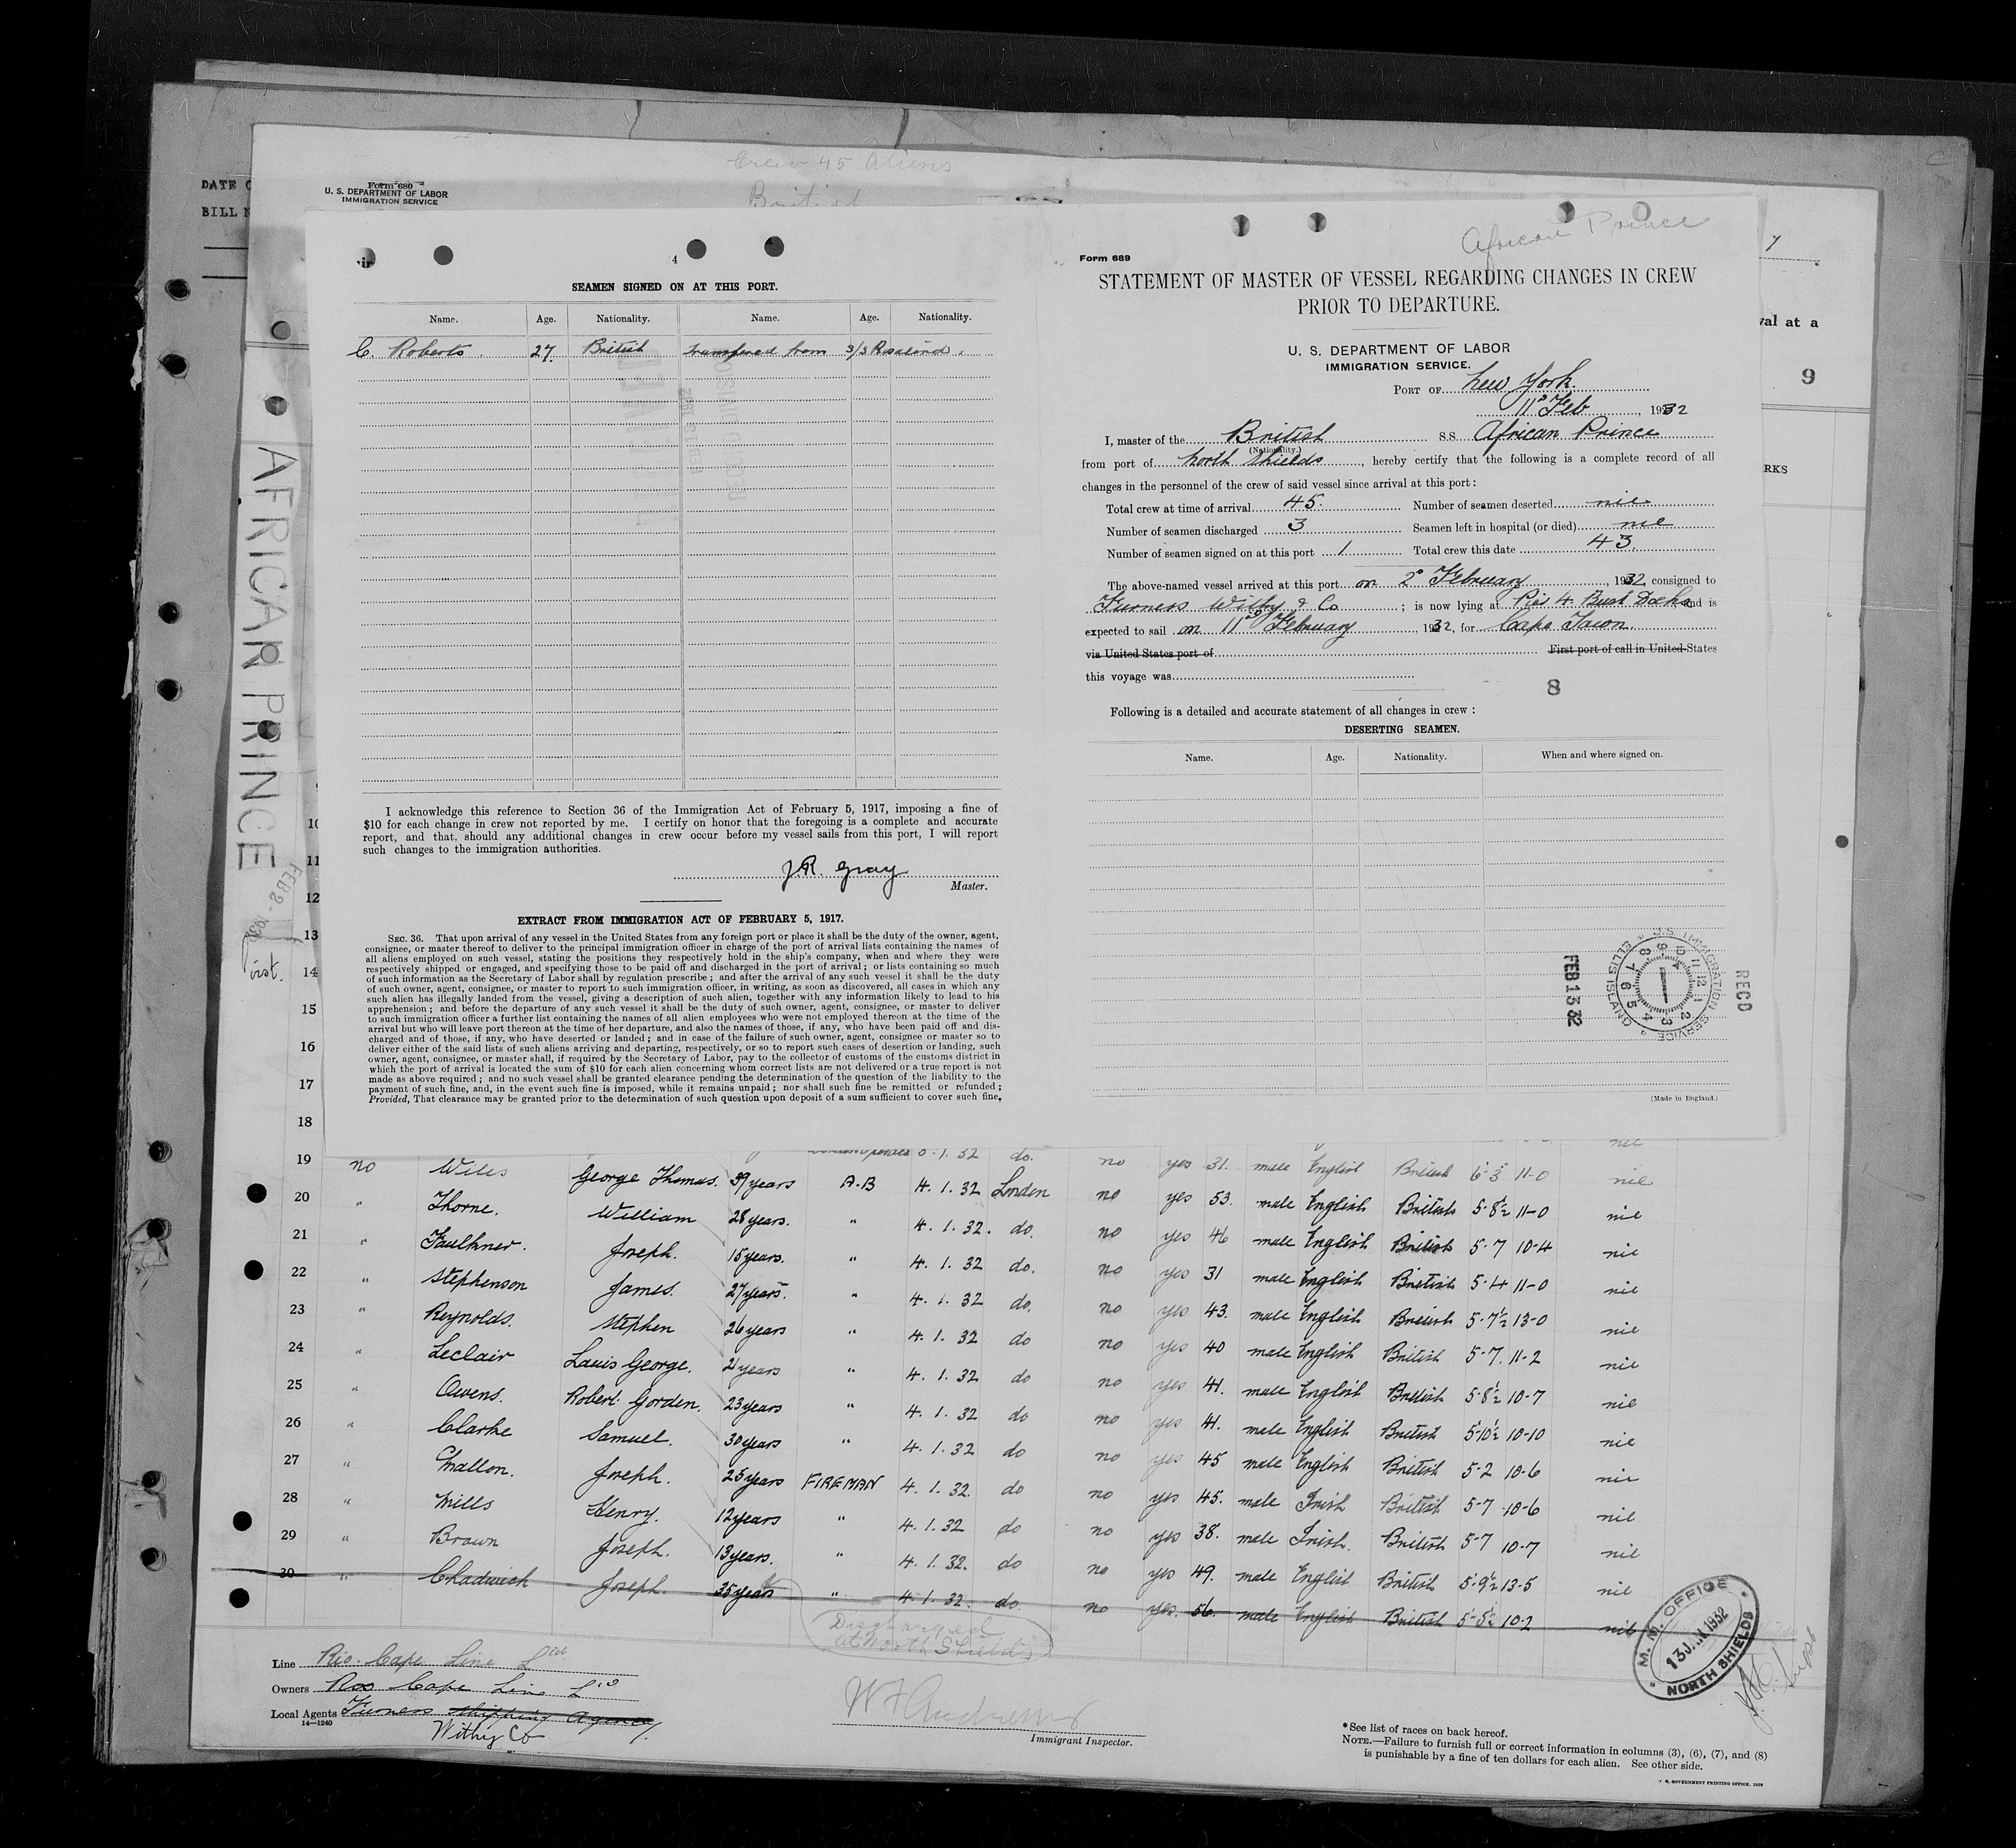 Crew 45 Aliens
British
DATE O
BILL N
Form 680
U. S. DEPARTMENT OF LABOR
IMMIGRATION SERVICE
val at a
9
RKS
AFRICAN PRINCE
FEB 2 - 1932
4
SEAMEN SIGNED ON AT THIS PORT.
Name. Age. Nationality. Name. Age. Nationality.
C. Roberts. 27. British transfered from S/S Rosalind.
I acknowledge this reference to Section 36 of the Immigration Act of February 5, 1917, imposing a fine of
$10 for each change in crew not reported by me. I certify on honor that the foregoing is a complete and accurate
report, and that, should any additional changes in crew occur before my vessel sails from this port, I will report
such changes to the immigration authorities.
J.R. Gray
Master.
EXTRACT FROM IMMIGRATION ACT OF FEBRUARY 5, 1917.
SEC. 36. That upon arrival of any vessel in the United States from any foreign port or place it shall be the duty of the owner, agent,
consignee, or master thereof to deliver to the principal immigration officer in charge of the port of arrival lists containing the names of
all aliens employed on such vessel, stating the positions they respectively hold in the ship's company, when and where they were
respectively shipped or engaged, and specifying those to be paid off and discharged in the port of arrival; or lists containing so much
of such information as the Secretary of Labor shall by regulation prescribe; and after the arrival of any such vessel it shall be the duty
of such owner, agent, consignee, or master to report to such immigration officer, in writing, as soon as discovered, all cases in which any
such alien has illegally landed from the vessel, giving a description of such alien, together with any information likely to lead to his
apprehension; and before the departure of any such vessel it shall be the duty of such owner, agent, consignee, or master to deliver
to such immigration officer a further list containing the names of all alien employees who were not employed thereon at the time of the
arrival but who will leave port thereon at the time of her departure, and also the names of those, if any, who have been paid off and dis-
charged and of those, if any, who have deserted or landed; and in case of the failure of such owner, agent, consignee or master so to
deliver either of the said lists of such aliens arriving and departing, respectively, or so to report such cases of desertion or landing, such
owner, agent, consignee, or master shall, if required by the Secretary of Labor, pay to the collector of customs of the customs district in
which the port of arrival is located the sum of $10 for each alien concerning whom correct lists are not delivered or a true report is not
made as above required; and no such vessel shall be granted clearance pending the determination of the question of the liability to the
payment of such fine, and, in the event such fine is imposed, while it remains unpaid; nor shall such fine be remitted or refunded;
Provided, That clearance may be granted prior to the determination of such question upon deposit of a sum sufficient to cover such fine.
African Prince
Form 689
STATEMENT OF MASTER OF VESSEL REGARDING CHANGES IN CREW
PRIOR TO DEPARTURE.
U. S. DEPARTMENT OF LABOR
IMMIGRATION SERVICE.
PORT OF New York.
11º Feb, 1932
I, master of the British S.S. African Prince
(Nationality.)
from port of North Shields, hereby certify that the following is a complete record of all
changes in the personnel of the crew of said vessel since arrival at this port:
Total crew at time of arrival 45. Number of seamen deserted nil
Number of seamen discharged 3 Seamen left in hospital (or died) nil
Number of seamen signed on at this port 1 Total crew this date 43.
The above-named vessel arrived at this port on 2º February, 1932, consigned to
Furness Withy & Co; is now lying at Pier 4 Bush Docks and is
expected to sail on 11º February, 1932, for Cape Town
via United States port of First port of call in United States
this voyage was
8
Following is a detailed and accurate statement of all changes in crew:
DESERTING SEAMEN.
Name. Age. Nationality. When and where signed on.
U.S. IMMIGRATION SERVICE ELLIS ISLAND
RECD
FEB 13 32
(Made in England.)
10
11
12
13
14
15
16
17
18
nil
19 no Wiles George Thomas. 39 years A.B 4. 1. 32 London no yes 53. male English British 5-8½ 11-0 nil
20 " Thorne. William 28 years. " 4. 1. 32. do. no yes 46 male English British 5-7 10-4 nil
21 " Faulkner. Joseph. 15 years. " 4. 1. 32 do. no yes 31 male English British 5-4 11-0 nil
22 " Stephenson James. 27 years. " 4. 1. 32 do. no yes 43. male English British 5-7½ 13-0 nil
23 " Reynolds. Stephen 26 years " 4. 1. 32 do no yes 40 male English British 5-7. 11-2 nil
24 " Leclair Louis George. 21 years " 4. 1. 32 do no yes 41. male English British 5-8½ 10-7 nil
25 " Owens. Robert Gorden. 23 years " 4. 1. 32 do no yes 41. male English British 5-10½ 10-10 nil
26 " Clarke Samuel. 30 years " 4. 1. 32 do no yes 45 male English British 5-2 10-6 nil
27 " Mallon. Joseph. 25 years FIREMAN 4. 1. 32. do no yes 45. male Irish British 5-7 10-6 nil
28 " Mills Henry. 12 years " 4. 1. 32 do no yes 38. male Irish. British 5-7 10-7 nil
29 " Brown Joseph. 13 years. " 4. 1. 32. do no yes 49. male English British 5-9½ 13-5 nil
30 " Chadwick Joseph. 35 years " 4. 1. 32. do. no yes. 56. male English British 5-5½ 10-2 nil
Discharged
at North Shields
M. M. OFFICE
13 JAN 1932
NORTH SHIELDS
Line Rio Cape Line Ltd
Owners Rio Cape Line Ltd
Local Agents Furness Shipping Agency.
14—1240
Withy Co
W F Andrews
Immigrant Inspector.
*See list of races on back hereof.
NOTE.—Failure to furnish full or correct information in columns (3), (6), (7), and (8)
is punishable by a fine of ten dollars for each alien. See other side.
U. S. GOVERNMENT PRINTING OFFICE. 1929